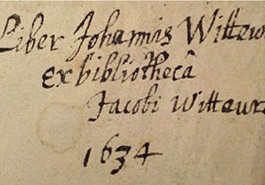 Liber Johannis Wittew
ex bibliothecâ
Jacobi Wittewr
1634